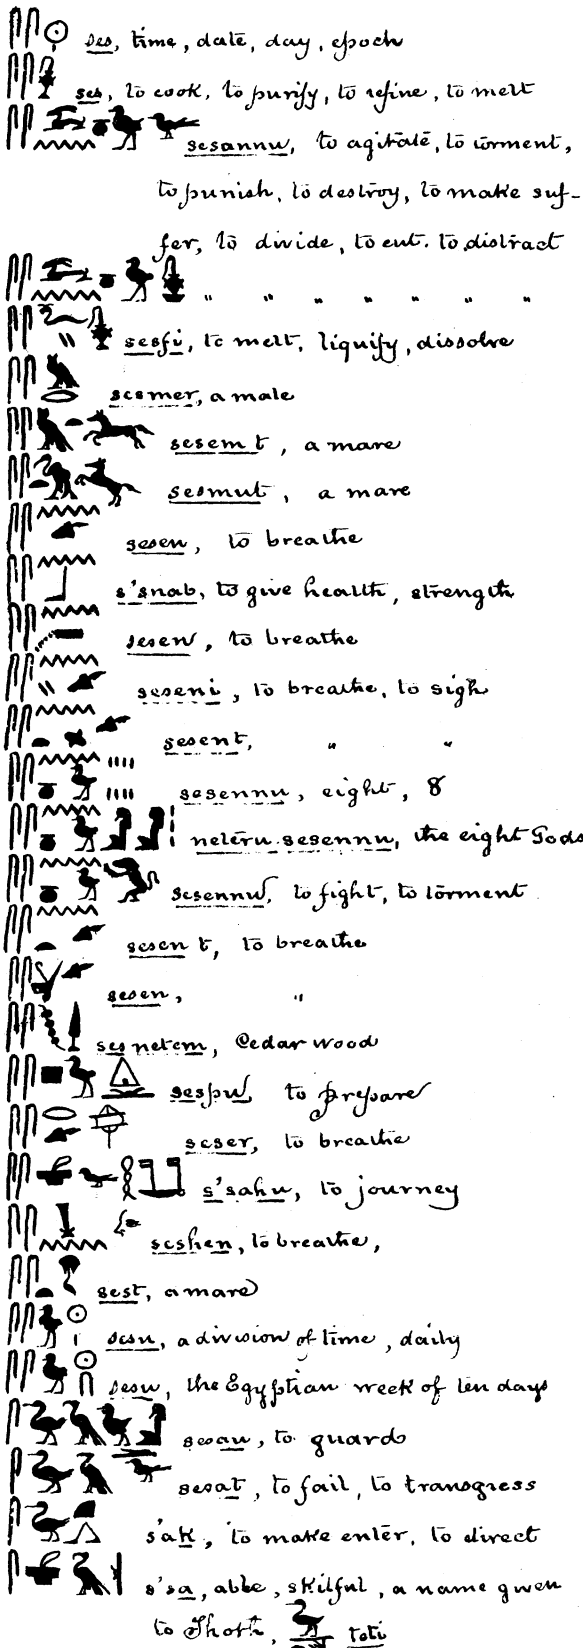 ses, time, date, day, epoch
ses, to cook, to purify, to refine, to melt
sesannu, to agitate, to torment,
to punish, to destroy, to make suf-
fer, to divide, to cut. to distract
" " " " " " "
sesfi, to melt, liquify, dissolve
sesmer, a male
sesem t, a mare
sesmut, a mare
sesen, to breathe
s'snab, to give health, strength
sesen, to breathe
seseni, to breathe, to sigh
sesent, " "
sesennu, eight, 8
neteru sesennu, the eight Gods
sesennu, to fight, to torment
sesen t, to breathe
sesen, "
sesnetem, Cedar wood
sespu, to prepare
seser, to breathe
s'sahu, to journey
seshen, to breathe,
sest, a mare
sesu, a division of time, daily
sesu, the Egyptian week of ten days
sesau, to guard
sesat, to fail, to transgress
s'ak, to make enter, to direct
s'sa, abbe, skilful, a name given
to Thoth, teti